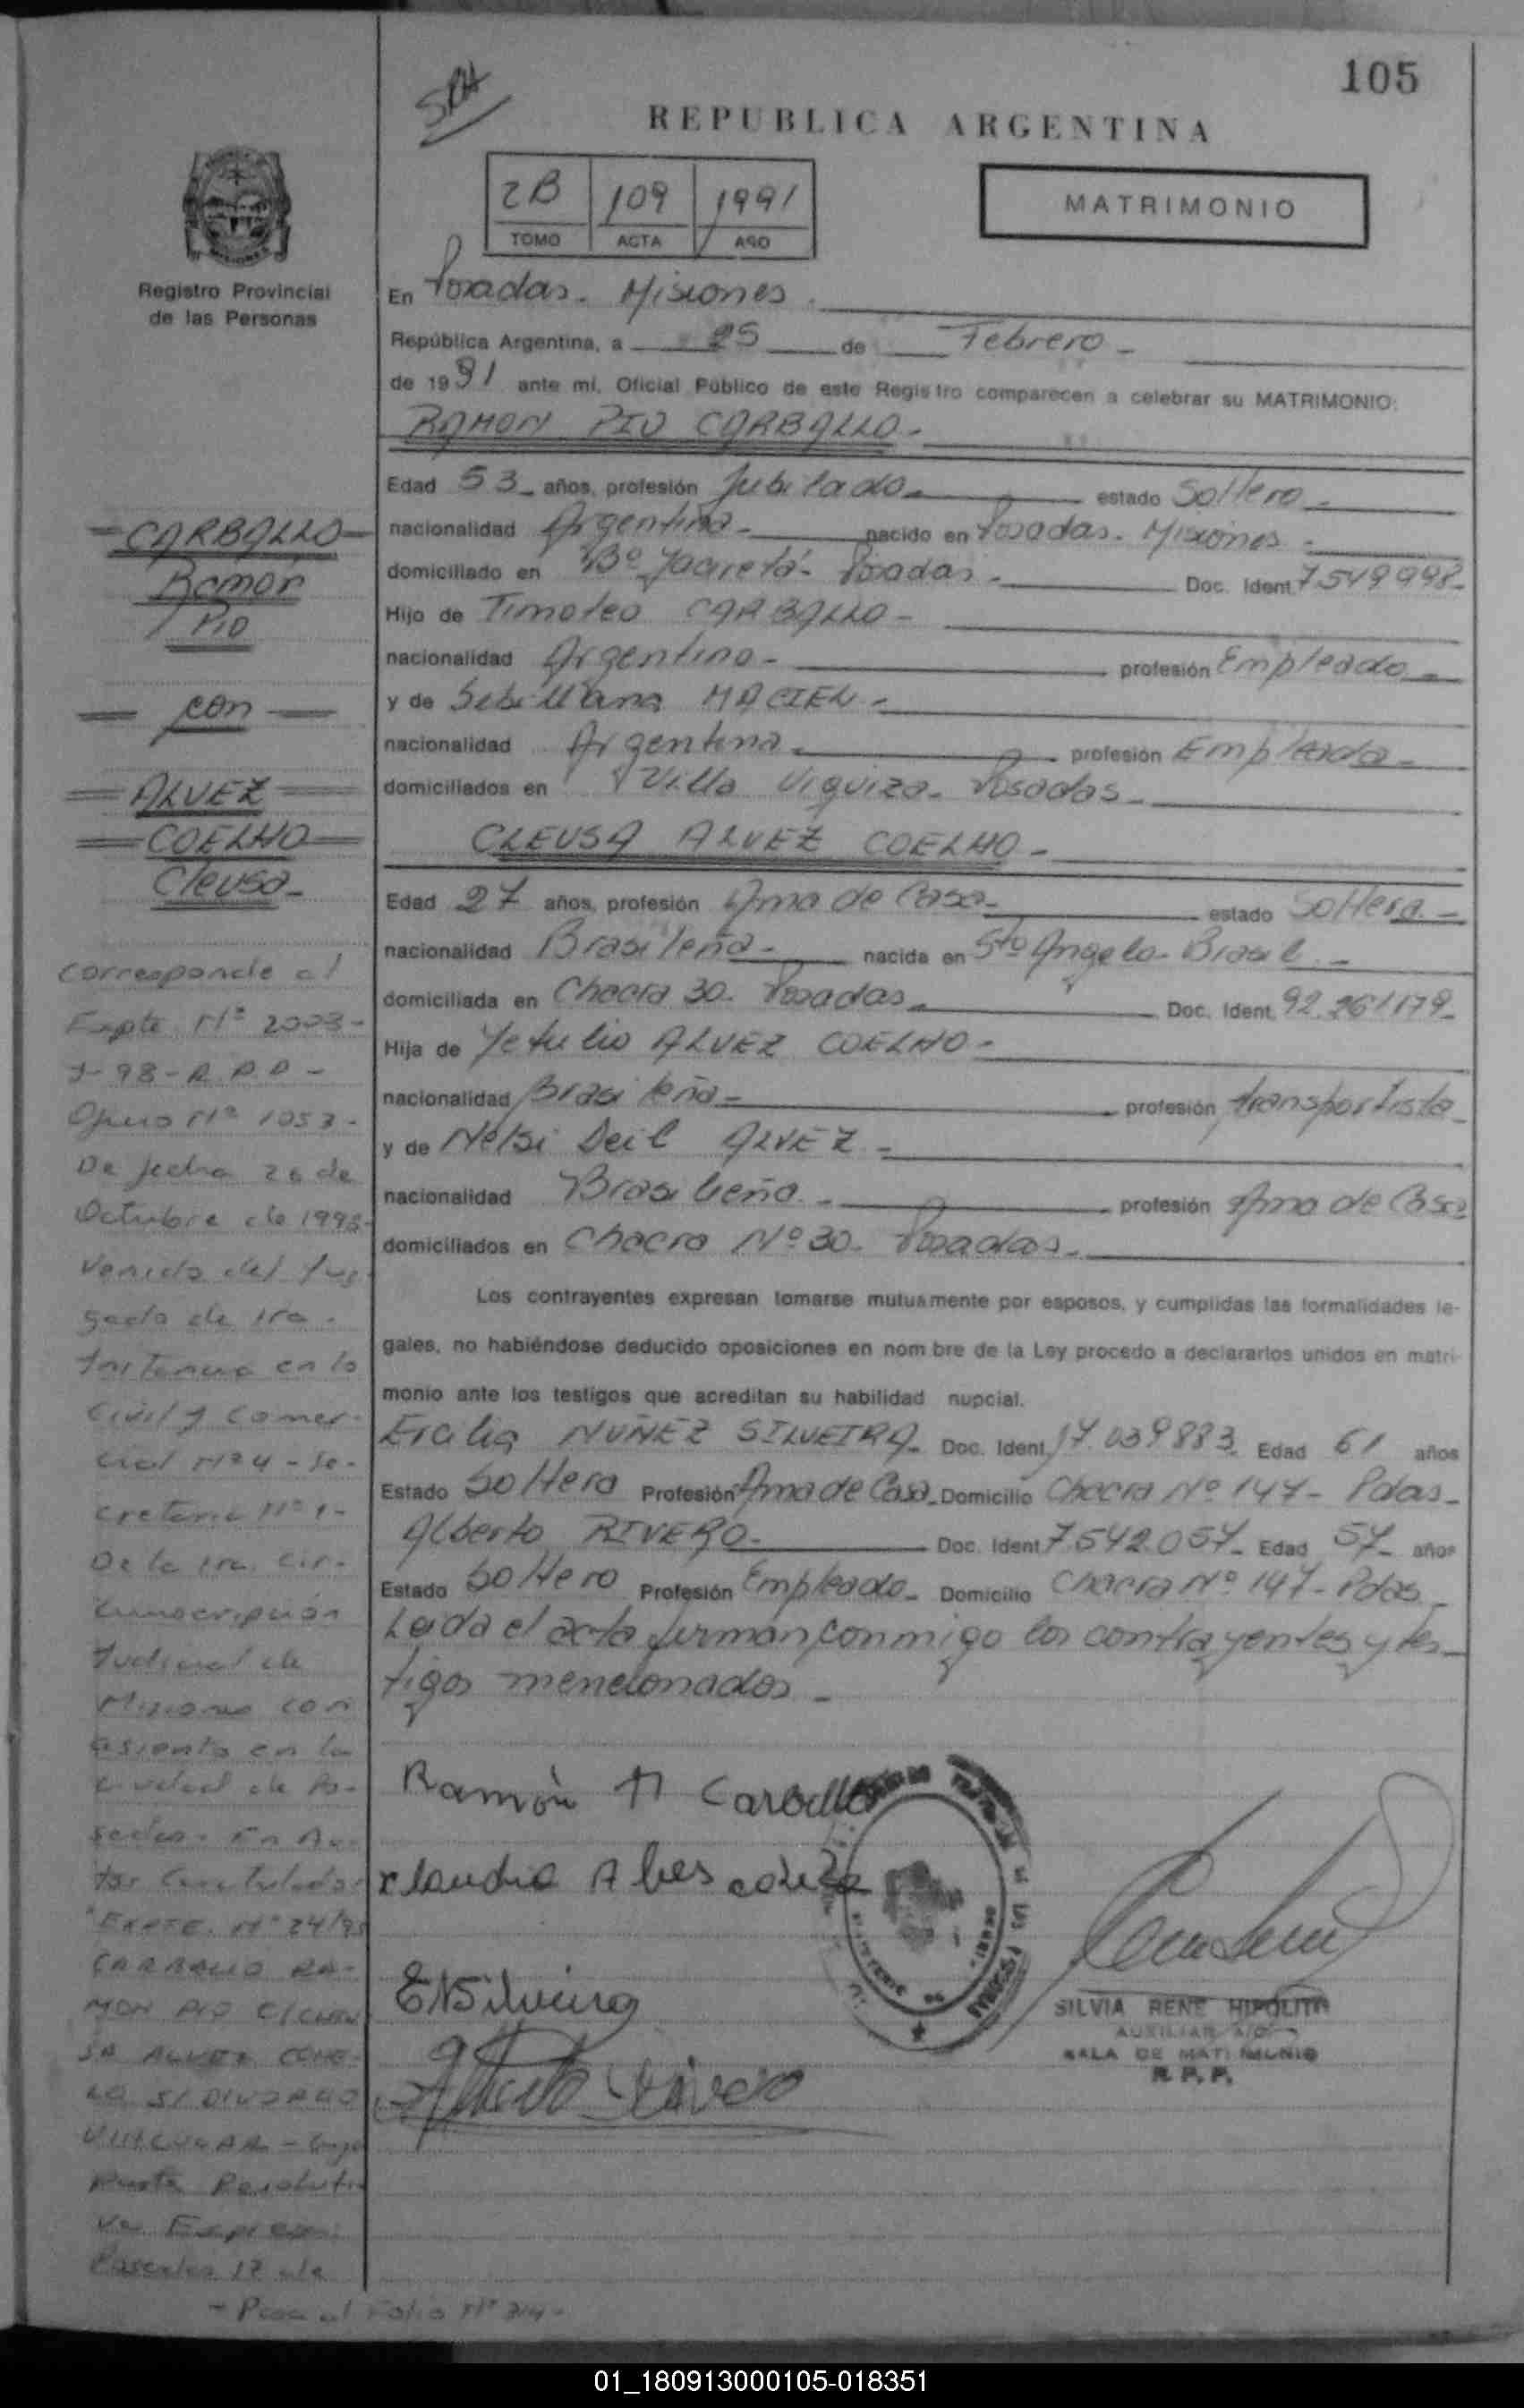 105
SRH
REPUBLICA ARGENTINA
2B 109 1991
TOMO ACTA AÑO
MATRIMONIO
Registro Provincial
de las Personas
En Posadas - Misiones.
República Argentina, a 25 de Febrero -
de 1991 ante mí, Oficial Público de este Registro comparecen a celebrar su MATRIMONIO:
RAMON PIO CARBALLO -
Edad 53 - años, profesión Jubilado - estado Soltero -
nacionalidad Argentina - nacido en Posadas - Misiones -
domiciliado en Bº Yacyretá - Posadas - Doc. Ident. 7.549.998 -
Hijo de Timoteo CARBALLO -
nacionalidad Argentino - profesión Empleado -
y de MACIEL -
nacionalidad Argentina - profesión Empleada -
domiciliados en Villa Urquiza - Posadas -
CLEUSA ALVEZ COELHO -
Edad 27 años, profesión Ama de Casa - estado Soltera -
nacionalidad Brasileña - nacida en Sto Angelo - Brasil -
domiciliada en Chacra 30 - Posadas - Doc. Ident. 92.261.179 -
Hija de Yetulio ALVEZ COELHO -
nacionalidad Brasileña - profesión transportista -
y de Nelsi Deil ALVEZ -
nacionalidad Brasileña - profesión Ama de Casa
domiciliados en Chacra Nº 30 - Posadas -
Los contrayentes expresan tomarse mutuamente por esposos, y cumplidas las formalidades le-
gales, no habiéndose deducido oposiciones en nombre de la Ley procedo a declararlos unidos en matri-
monio ante los testigos que acreditan su habilidad nupcial.
Ercilia NUÑEZ SILVEIRA - Doc. Ident. 17.039.883 - Edad 61 años
Estado Soltera Profesión Ama de Casa - Domicilio Chacra Nº 147 - Pdas -
Alberto RIVERO - Doc. Ident. 7.542.057 - Edad 57 - años
Estado Soltero Profesión Empleado - Domicilio Chacra Nº 147 - Pdas -
Leida el acta firman conmigo los contrayentes y tes-
tigos mencionados -
Ramón Carballo
ENSilveira
Alberto Rivero
SILVIA RENE HIPOLITO
AUXILIAR
SALA DE MATRIMONIO
R. P. P.
CARBALLO
Ramón
Pio
con
ALVEZ
COELHO
Cleusa -
corresponde al
Expte. Nº 2003 -
J - 98 - R.P.P -
Oficio Nº 1053 -
De fecha 26 de
Octubre de 1998 -
Venido del Juz-
gado de 1ra -
Instancia en lo
Civil y Comer-
cial Nº 4 - Se-
cretaria Nº 1 -
De la 1ra. Cir-
cunscripción
Judicial de
Misiones con
asiento en la
ciudad de Po-
sadas - En Au-
tos Caratulados
"EXPTE. Nº 24/95
CARBALLO RA-
MON PIO C/ CLEU
SA ALVEZ COHE-
LO S/ DIVORCIO
VINCULAR -
Parte Resoluti
va Expresa:
Posadas 17 de
- Pasa al Folio Nº 314 -
01_180913000105-018351